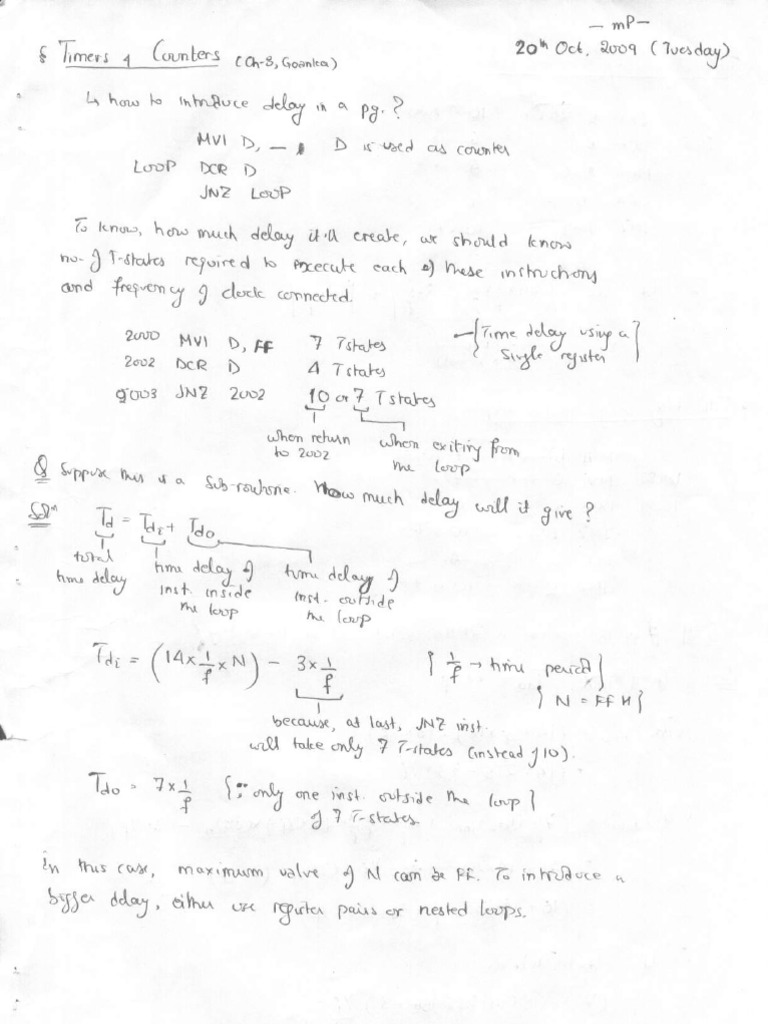 — mP —
§ Timers & Counters (Ch-8, Goanka) 20th Oct, 2009 (Tuesday)
↳ how to introduce delay in a pg.?
MVI D, — , D is used as counter
LOOP DCR D
JNZ LOOP
To know, how much delay it'll create, we should know
no. of T-states required to execute each of these instructions
and frequency of clock connected.
2000 MVI D, FF 7 Tstates
2002 DCR D 4 Tstates
2003 JNZ 2002 10 or 7 T states
—{Time delay using a
single register}
when return
to 2002
when exiting from
the loop
Q Suppose this is a Sub-routine. How much delay will it give?
Solⁿ Td = Tdi + Tdo
total
time delay
time delay of
inst. inside
the loop
time delay of
inst. outside
the loop
Tdi = (14 x 1/f x N) - 3 x 1/f { 1/f → time period}
{ N = FF H}
because, at last, JNZ inst.
will take only 7 T-states (instead of 10).
Tdo = 7 x 1/f {∵ only one inst. outside the loop}
of 7 T-states.
In this case, maximum value of N can be FF. To introduce a
bigger delay, either use register pairs or nested loops.